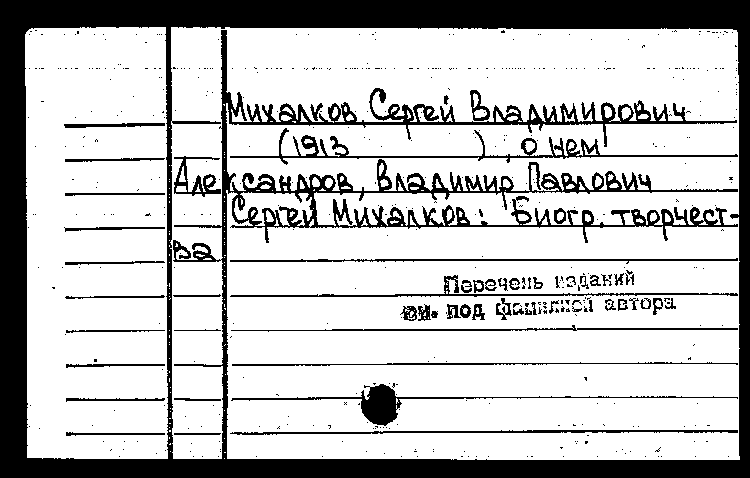 Михалков, Сергей Владимирович
(1913 ), о нем
Александров, Владимир Павлович
Сергей Михалков: Биогр. творчест-
ва
Перечень изданий
см. под фамилией автора